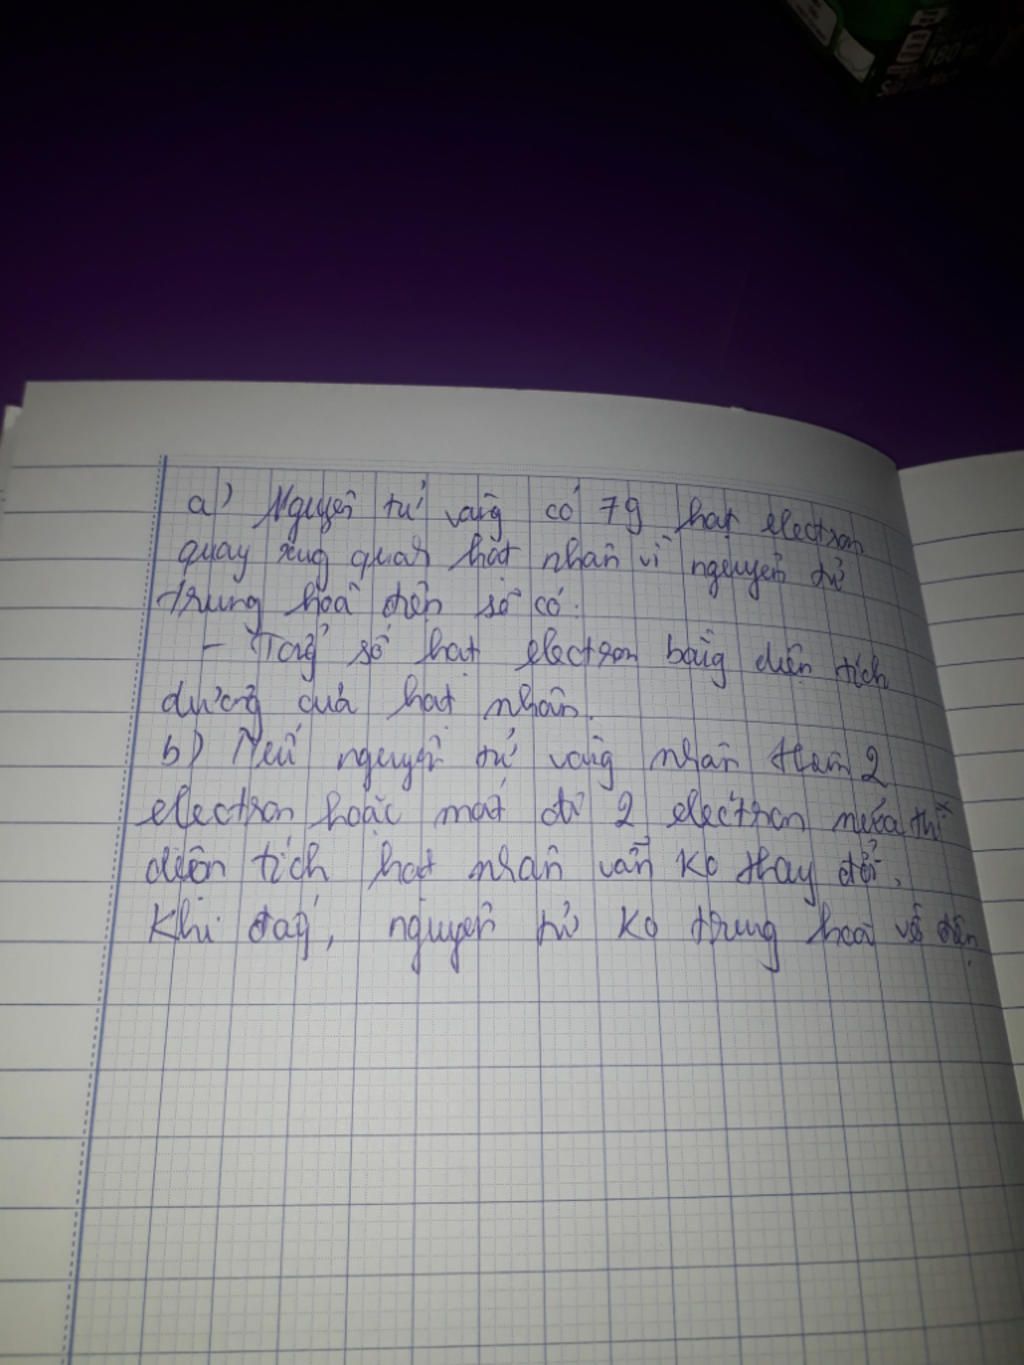 180 ml
a) Nguyên tử vàng có 79 hạt electron
quay xung quanh hạt nhân vì nguyên tử
trung hoà điện sẽ có:
- Tổng số hạt electron bằng điện tích
dương của hạt nhân.
b) Nếu nguyên tử vàng nhận thêm 2
electron hoặc mất đi 2 electron nữa thì
điện tích hạt nhân vẫn ko thay đổi.
Khi đấy, nguyên tử ko trung hoà về điện